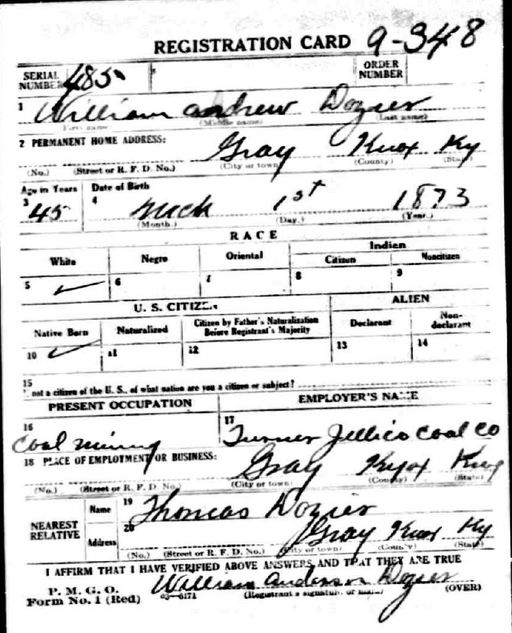 REGISTRATION CARD 9-348
SERIAL NUMBER 485 ORDER NUMBER
1 William Andrew Dozier
First name (Middle name) (Last name)
2 PERMANENT HOME ADDRESS: Gray Knox Ky
(No.) (Street or R. F. D. No.) (City or town) (County) (State)
Age in Years Date of Birth
3 45 4 Mch 1st 1873
(Month.) (Day.) (Year.)
RACE
White Negro Oriental Indian
Citizen Noncitizen
5 ✓ 6 7 8 9
U. S. CITIZEN ALIEN
Native Born Naturalized Citizen by Father's Naturalization Before Registrant's Majority Declarant Non-declarant
10 ✓ 11 12 13 14
15
not a citizen of the U. S., of what nation are you a citizen or subject?
PRESENT OCCUPATION EMPLOYER'S NAME
16 17
Coal mining Turner Jellico Coal Co
18 PLACE OF EMPLOYMENT OR BUSINESS: Gray Knox
(No.) (Street or R. F. D. No.) (City or town) (County) (State)
NEAREST RELATIVE Name 19 Thomas Dozier
Address 20 Gray Knox Ky
(No.) (Street or R. F. D. No.) (City or town) (County) (State)
I AFFIRM THAT I HAVE VERIFIED ABOVE ANSWERS AND THAT THEY ARE TRUE
P. M. G. O.
Form No. 1 (Red) 03-6171 William Anderson Dozier
(Registrant's signature or mark) (OVER)